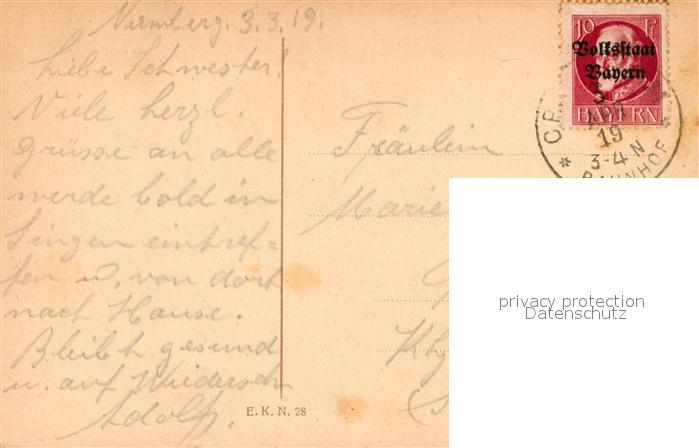 Nürnberg. 3.3.19.
Liebe Schwester!
Viele herzl.
Grüsse an alle
werde bald in
Singen eintref=
fen u. von dort
nach Hause.
Bleibt gesund
u. auf Wiedersehn
Adolf.
E. K. N. 28
10 Pf
Volksstaat
Bayern
BAYERN
3
19
3-4 N
BAHNHOF
Fräulein
Marie
privacy protection
Datenschutz